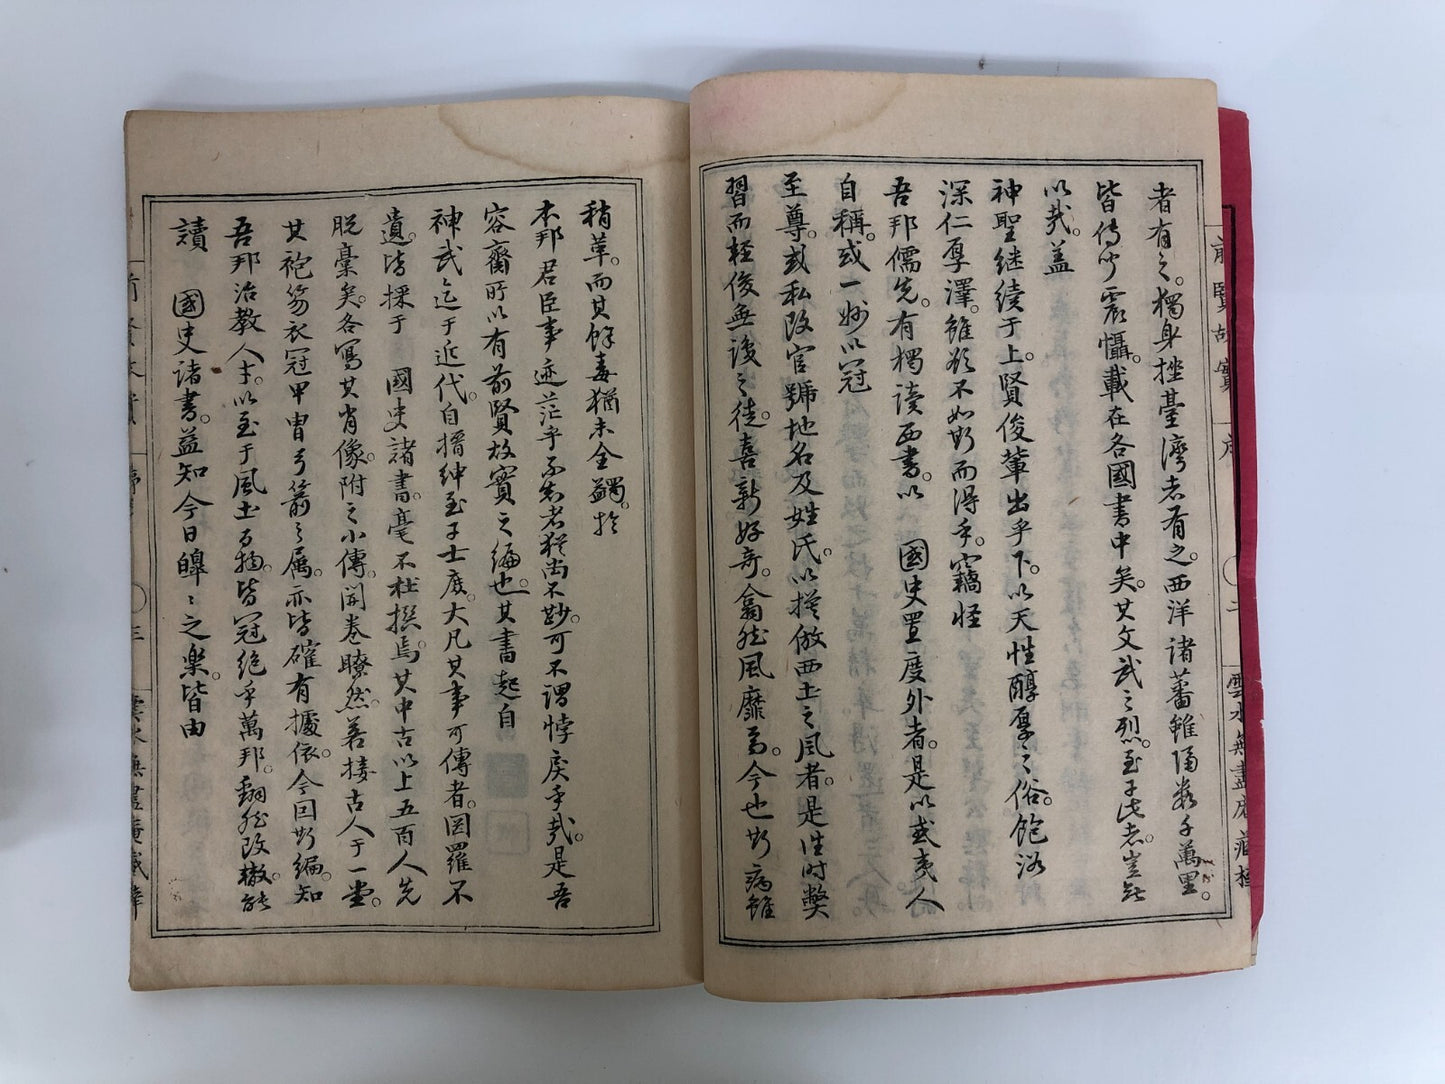 者有之。獨身挫臺灣者有之。西洋諸蕃雖隔數千萬里。
皆傳聞震懾。載在各國書中矣。其文武之烈。至于此者。豈無
以哉。蓋
神聖継續于上。賢俊輩出乎下。以天性醇厚之俗。飽浴
深仁厚澤。雖欲不如斯而得乎。竊怪
吾邦儒先。有獨読西書。以 國史置度外者。是以或夷人
自稱。或一妙以冠
至尊。或私改官號地名及姓氏。以摸倣西土之風者。是往時弊
習而輕俊無後之徒。喜新好奇。翕然風靡焉。今也斯病雖
稍革。而其餘毒猶未全蠲。於
本邦君臣事迹茫乎不知者猶尚不尠。可不謂悖戾乎哉。是吾
容齋所以有前賢故實之編也。其書起自
神武迄于近代。自搢紳至于士庶。大凡其事可傳者。罔羅不
遺。皆採于 國史諸書。毫不杜撰焉。其中古以上五百人先
脱稾矣。各寫其肖像。附之小傳。開巻瞭然。若接古人于一堂。
其袍笏衣冠甲冑弓箭之属。亦皆確有據依。今因斯編。知
吾邦治教人士。以至于風土百物。皆冠絶乎萬邦。翻然改轍。能
讀 國史諸書。益知今日皥〻之楽。皆由
前賢故實 序 〇二 雲水無盡庵藏梓
前賢故實 序 〇三 雲水無盡庵藏梓